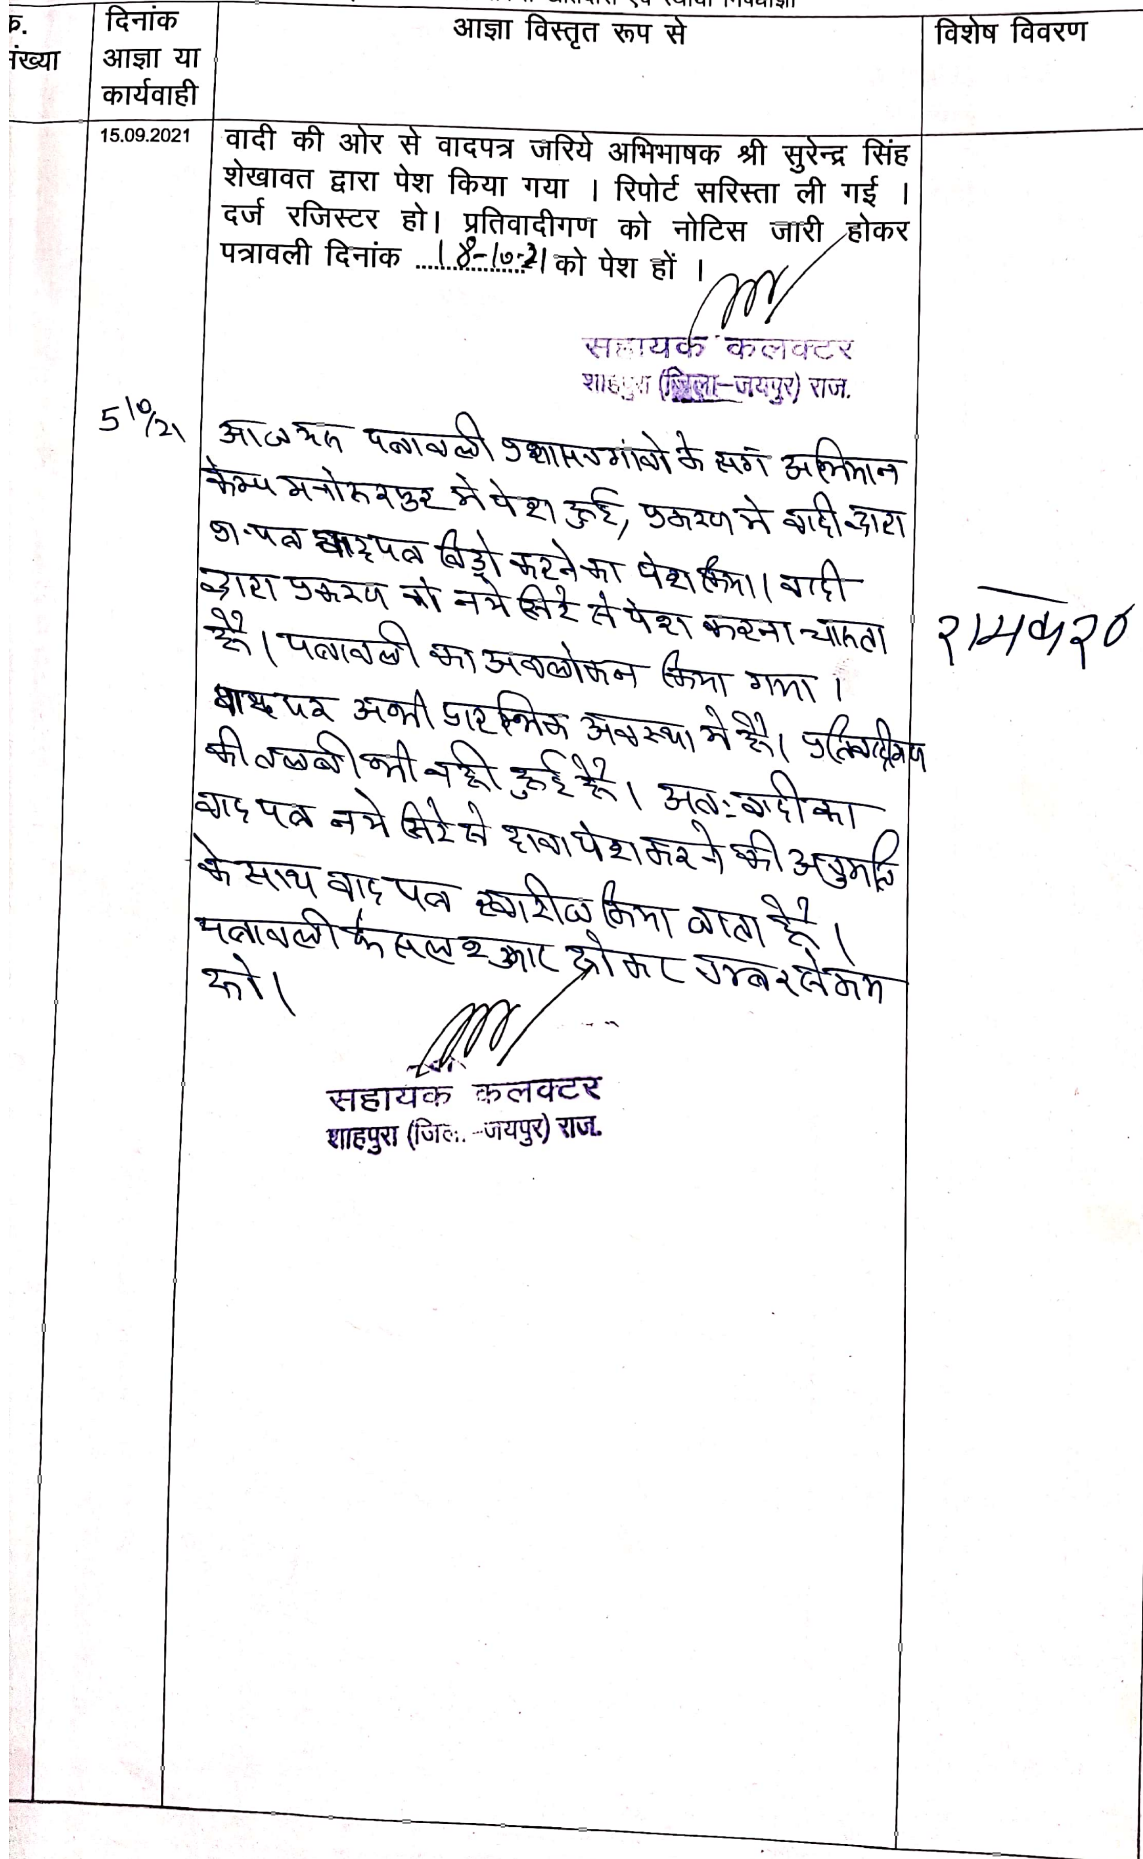 क्र. दिनांक आज्ञा विस्तृत रूप से विशेष विवरण
संख्या आज्ञा या
कार्यवाही
15.09.2021 वादी की ओर से वादपत्र जरिये अभिभाषक श्री सुरेन्द्र सिंह
शेखावत द्वारा पेश किया गया । रिपोर्ट सरिस्ता ली गई ।
दर्ज रजिस्टर हो। प्रतिवादीगण को नोटिस जारी होकर
पत्रावली दिनांक 18-10-21 को पेश हों ।
सहायक कलक्टर
शाहपुरा (जिला-जयपुर) राज.
5/10/21 आज यह पत्रावली प्रशासन गांवो के संग अभियान
केम्प मनोहरपुर मे पेश हुई, प्रकरण मे वादी द्वारा
प्रा.पत्र वादपत्र विड्रो करने का पेश किया। वादी
द्वारा प्रकरण को नये सिरे से पेश करना चाहता
है। पत्रावली का अवलोकन किया गया ।
अभी प्रारम्भिक अवस्था मे है। प्रतिवादीगण
की तलबी भी नही हुई है। अतः वादी का
वाद पत्र नये सिरे से दावा पेश करने की अनुमति
के साथ वाद पत्र खारीज किया जाता है।
पत्रावली फैसल शुमार होकर नम्बर से कम
हो।
सहायक कलक्टर
शाहपुरा (जिला-जयपुर) राज.